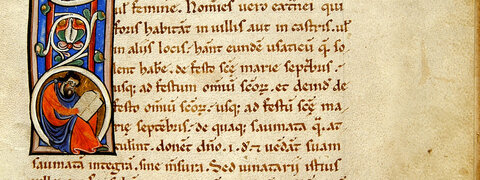 ul̃ femine. Nom̃es uero ea̾tnei qui
foris habitãt in uillis aut in castris. ul̃
in aliis locis. hãnt eundẽ usaticũ q̃ so
lent habe. de festo sc̃e marie septb̃ris.
usq; ad festum om̃iũ sc̃oꝝ. et deinde de
festo om̃iũ sc̃oꝝ. usq; ad festũ sc̃e ma
rie septẽbris. de quaq; saumata q̃. at
tulint. donẽt dño .i. đ. & uedãt suam
saumatã integrã. sine m̃sura. Sed uinatarii istius